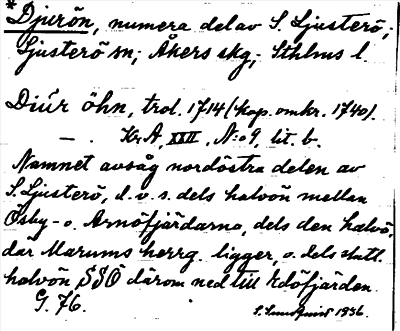 *Djurön, numera del av S. Ljusterö,
Ljusterö sn; Åkers skg; Sthlms l.
Diúr öhn, trol. 1714 (kop. omkr. 1740).
— . KrA, XXII, N:o 9, lit. b.
Namnet avsåg nordöstra delen av
S. Ljusterö, d. v. s. dels halvön mellan
Osby- o. Arnöfjärdarna, dels den halvö,
där Marums herrg. ligger, o. dels slutl.
halvön SSÖ därom ned till Edöfjärden.
G. 76.
S. Sundqvist 1936.